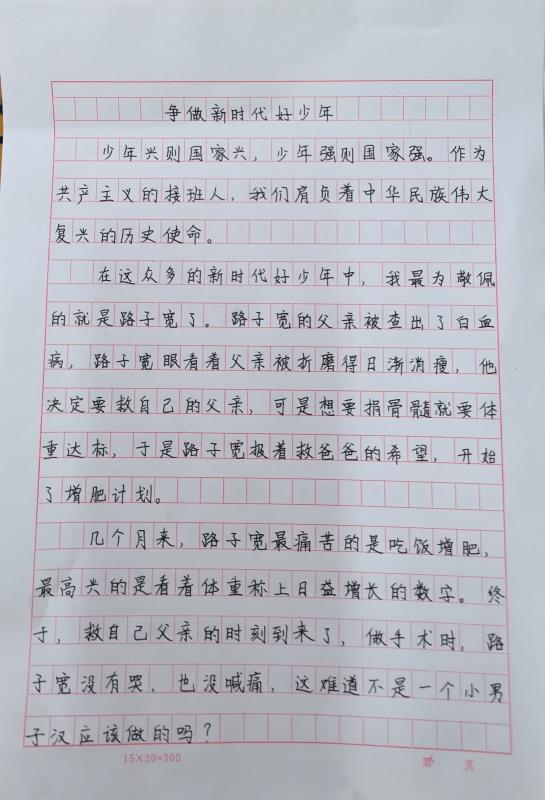 争做新时代好少年
少年兴则国家兴，少年强则国家强。作为
共产主义的接班人，我们肩负着中华民族伟大
复兴的历史使命。
在这众多的新时代好少年中，我最为敬佩
的就是路子宽了。路子宽的父亲被查出了白血
病，路子宽眼看着父亲被折磨得日渐消瘦，他
决定要救自己的父亲，可是想要捐骨髓就要体
重达标，于是路子宽报着救爸爸的希望，开始
了增肥计划。
几个月来，路子宽最痛苦的是吃饭增肥，
最高兴的是看着体重称上日益增长的数字。终
于，救自己父亲的时刻到来了，做手术时，路
子宽没有哭，也没喊痛，这难道不是一个小男
子汉应该做的吗？
15×20=300
第 页